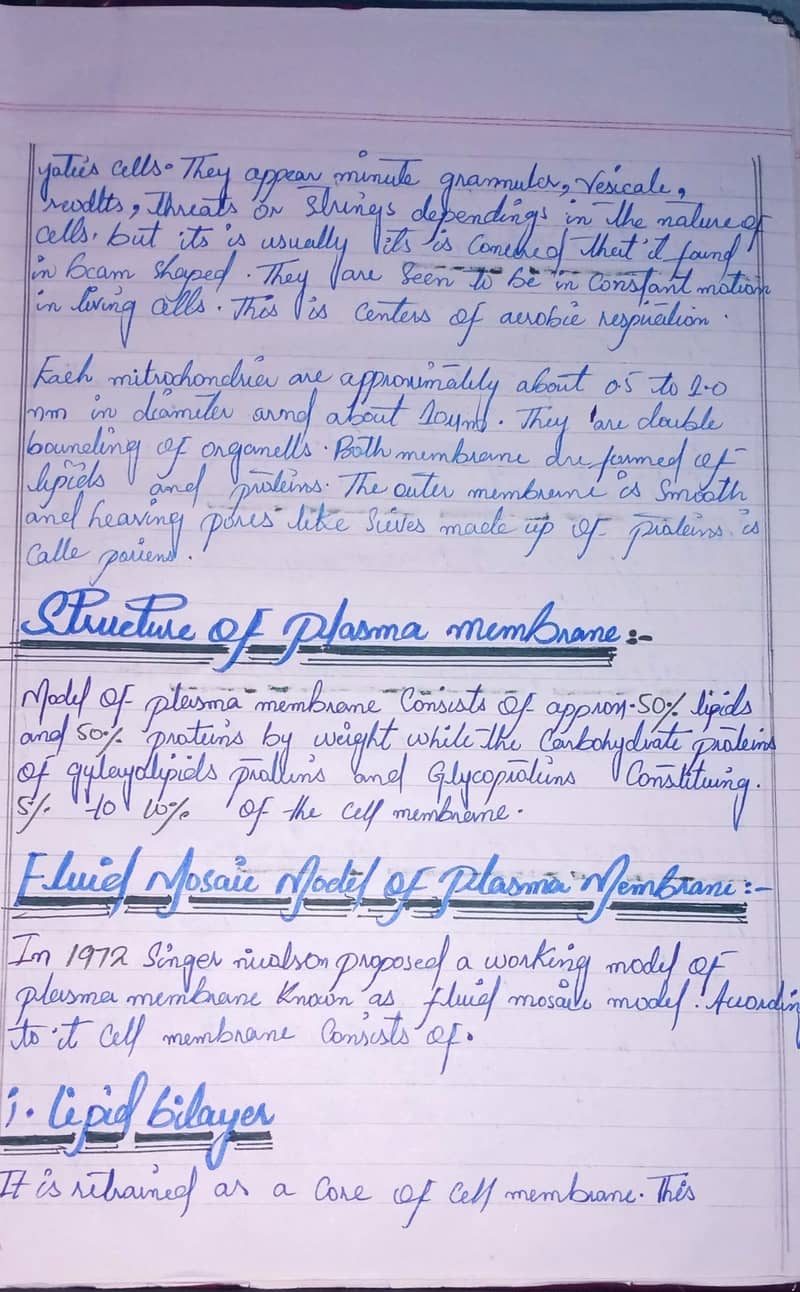 yoties cells. They appear minute grannuler, Vesicale,
rwodlts, threats or Strings dependings in the nature of
cells. but its is usually its is Conened that it found
in bcam shaped. They are Seen to be in Constant motion
in living cells. This is centers of aerobic respiration.
Each mitrochondria are approximately about 05 to 1.0
nm in diameter arnd about 10ym. They are double
bounding of organells. Both membrane are formed of
lipids and proteins. The outer membrane is Smooth
and heaving pores like Sieves made up of proteins is
Calle poriens.
Structure of plasma membrane:-
Model of plasma membrane Consists of approx.50% lipids
and 50% proteins by weight while the Carbohydrate proteins
of gyleyolipids protiens and Glycoproteins Constituing.
5% to 10% of the cell membrane.
Fluid Mosaic Model of Plasma Membrane:-
In 1972 Singer nicolson proposed a working model of
plasma membrane Known as fluid mosaic model. According
to it Cell membrane Consists of.
i. Lipid bilayer
It is retrained as a Core of Cell membrane. This